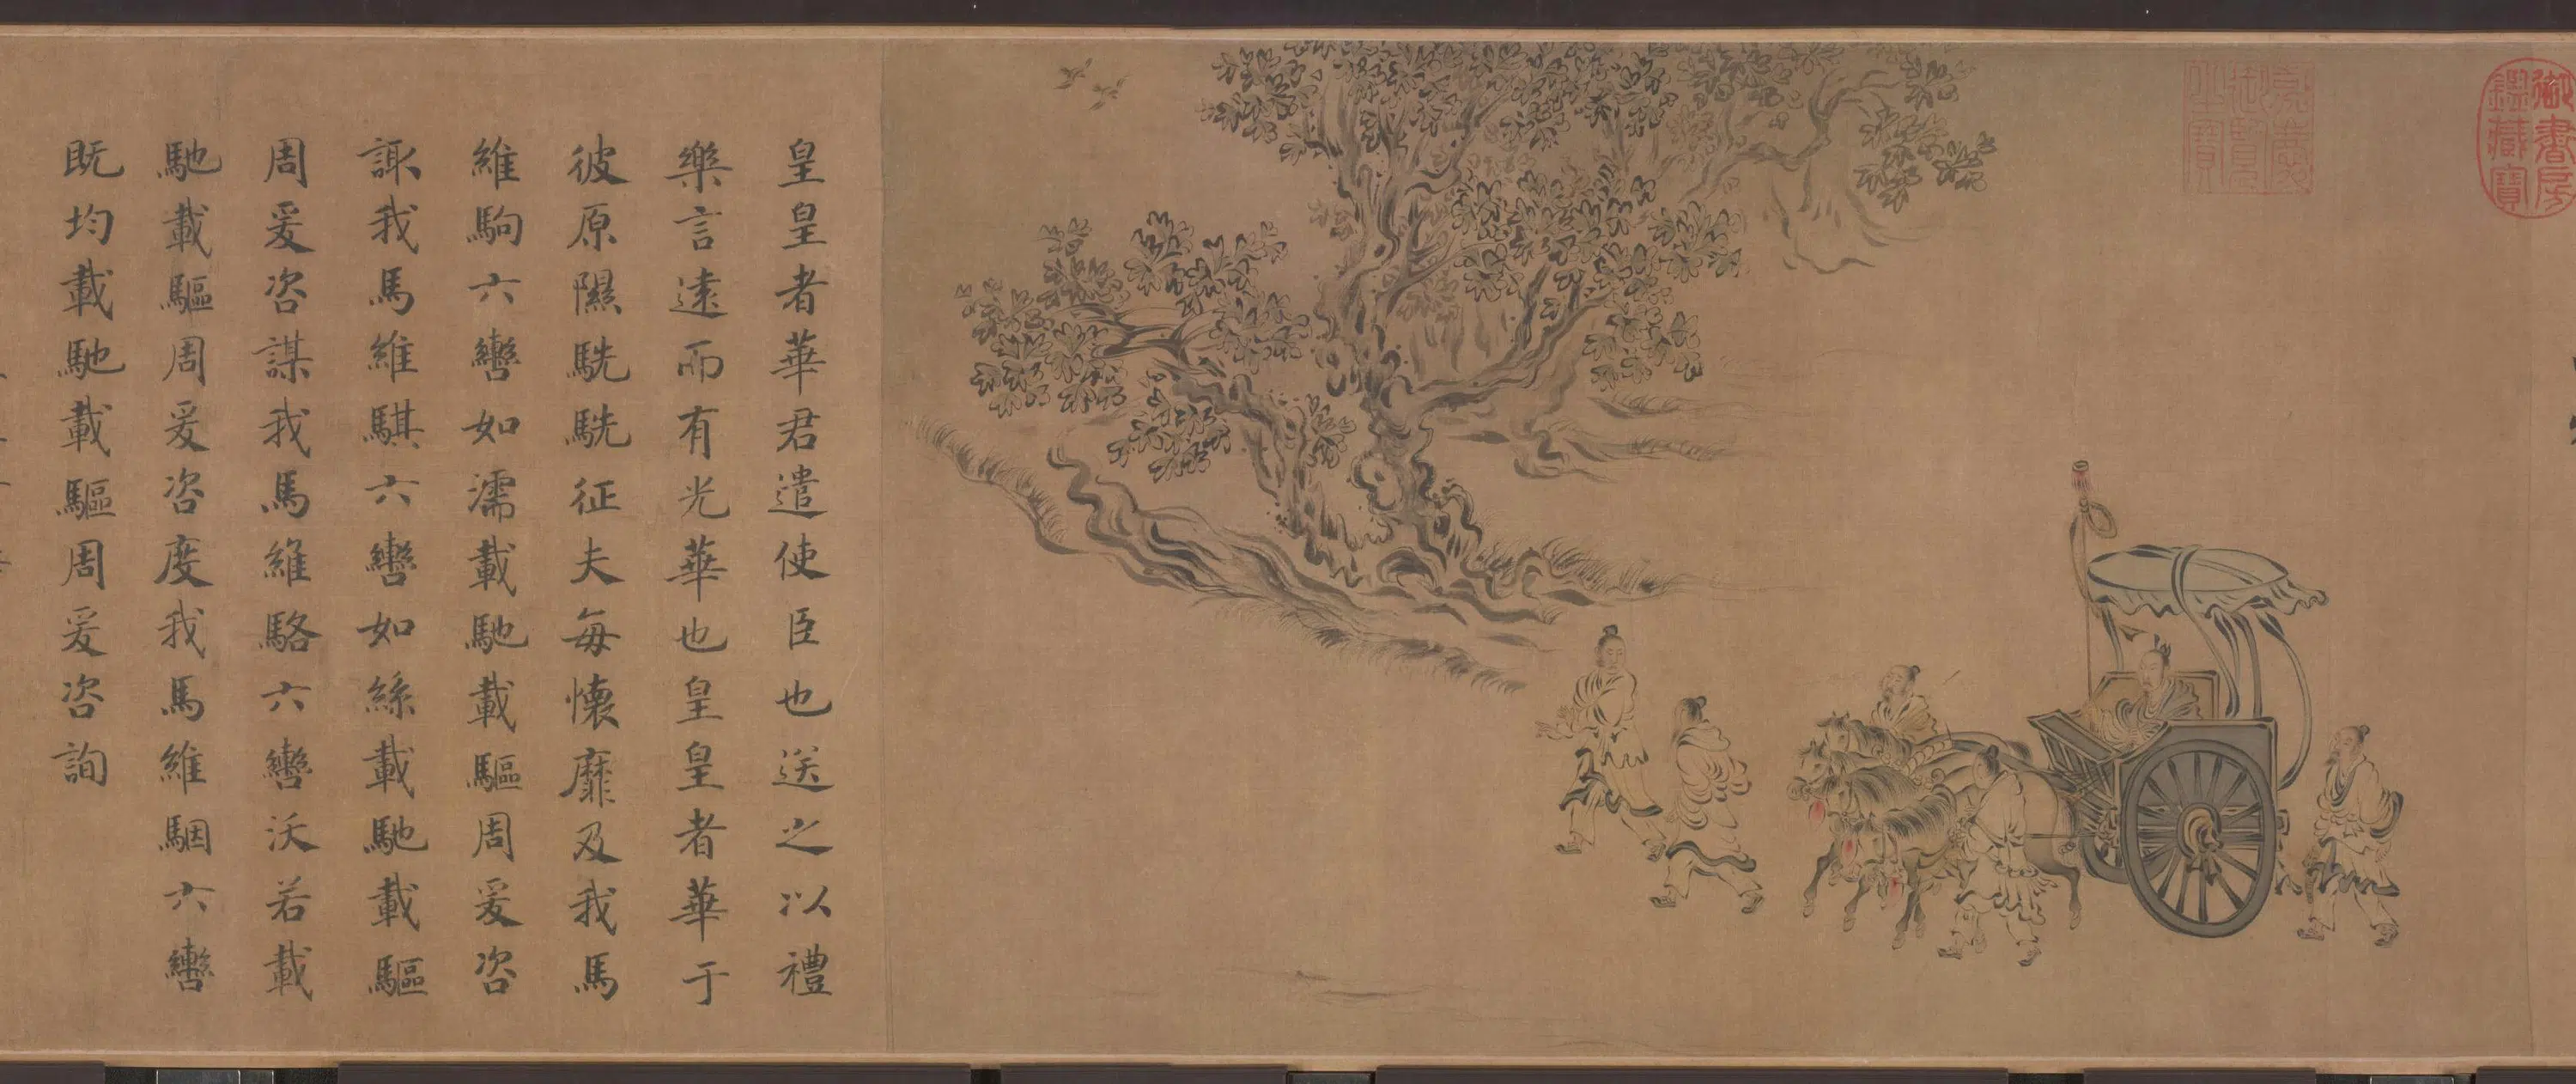 御書房鑑藏寶
嘉慶御覽之寶
皇皇者華君遣使臣也送之以禮
樂言遠而有光華也皇皇者華于
彼原隰駪駪征夫每懷靡及我馬
維駒六轡如濡載馳載驅周爰咨
諏我馬維騏六轡如絲載馳載驅
周爰咨謀我馬維駱六轡沃若載
馳載驅周爰咨度我馬維駰六轡
既均載馳載驅周爰咨詢